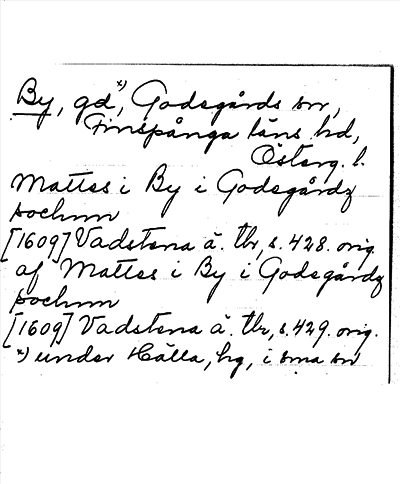 By, gd*), Godegårds sn,
Finspånga läns hd,
Österg. l.
Mattes i By i Godegårdz
sochnn
[1609] Vadstena ä. tbr, s. 428. orig.
af Mattes i By i Godegårdz
sochnn
[1609] Vadstena ä. tbr, s. 429. orig.
*) under Hälla, hg, i sma sn